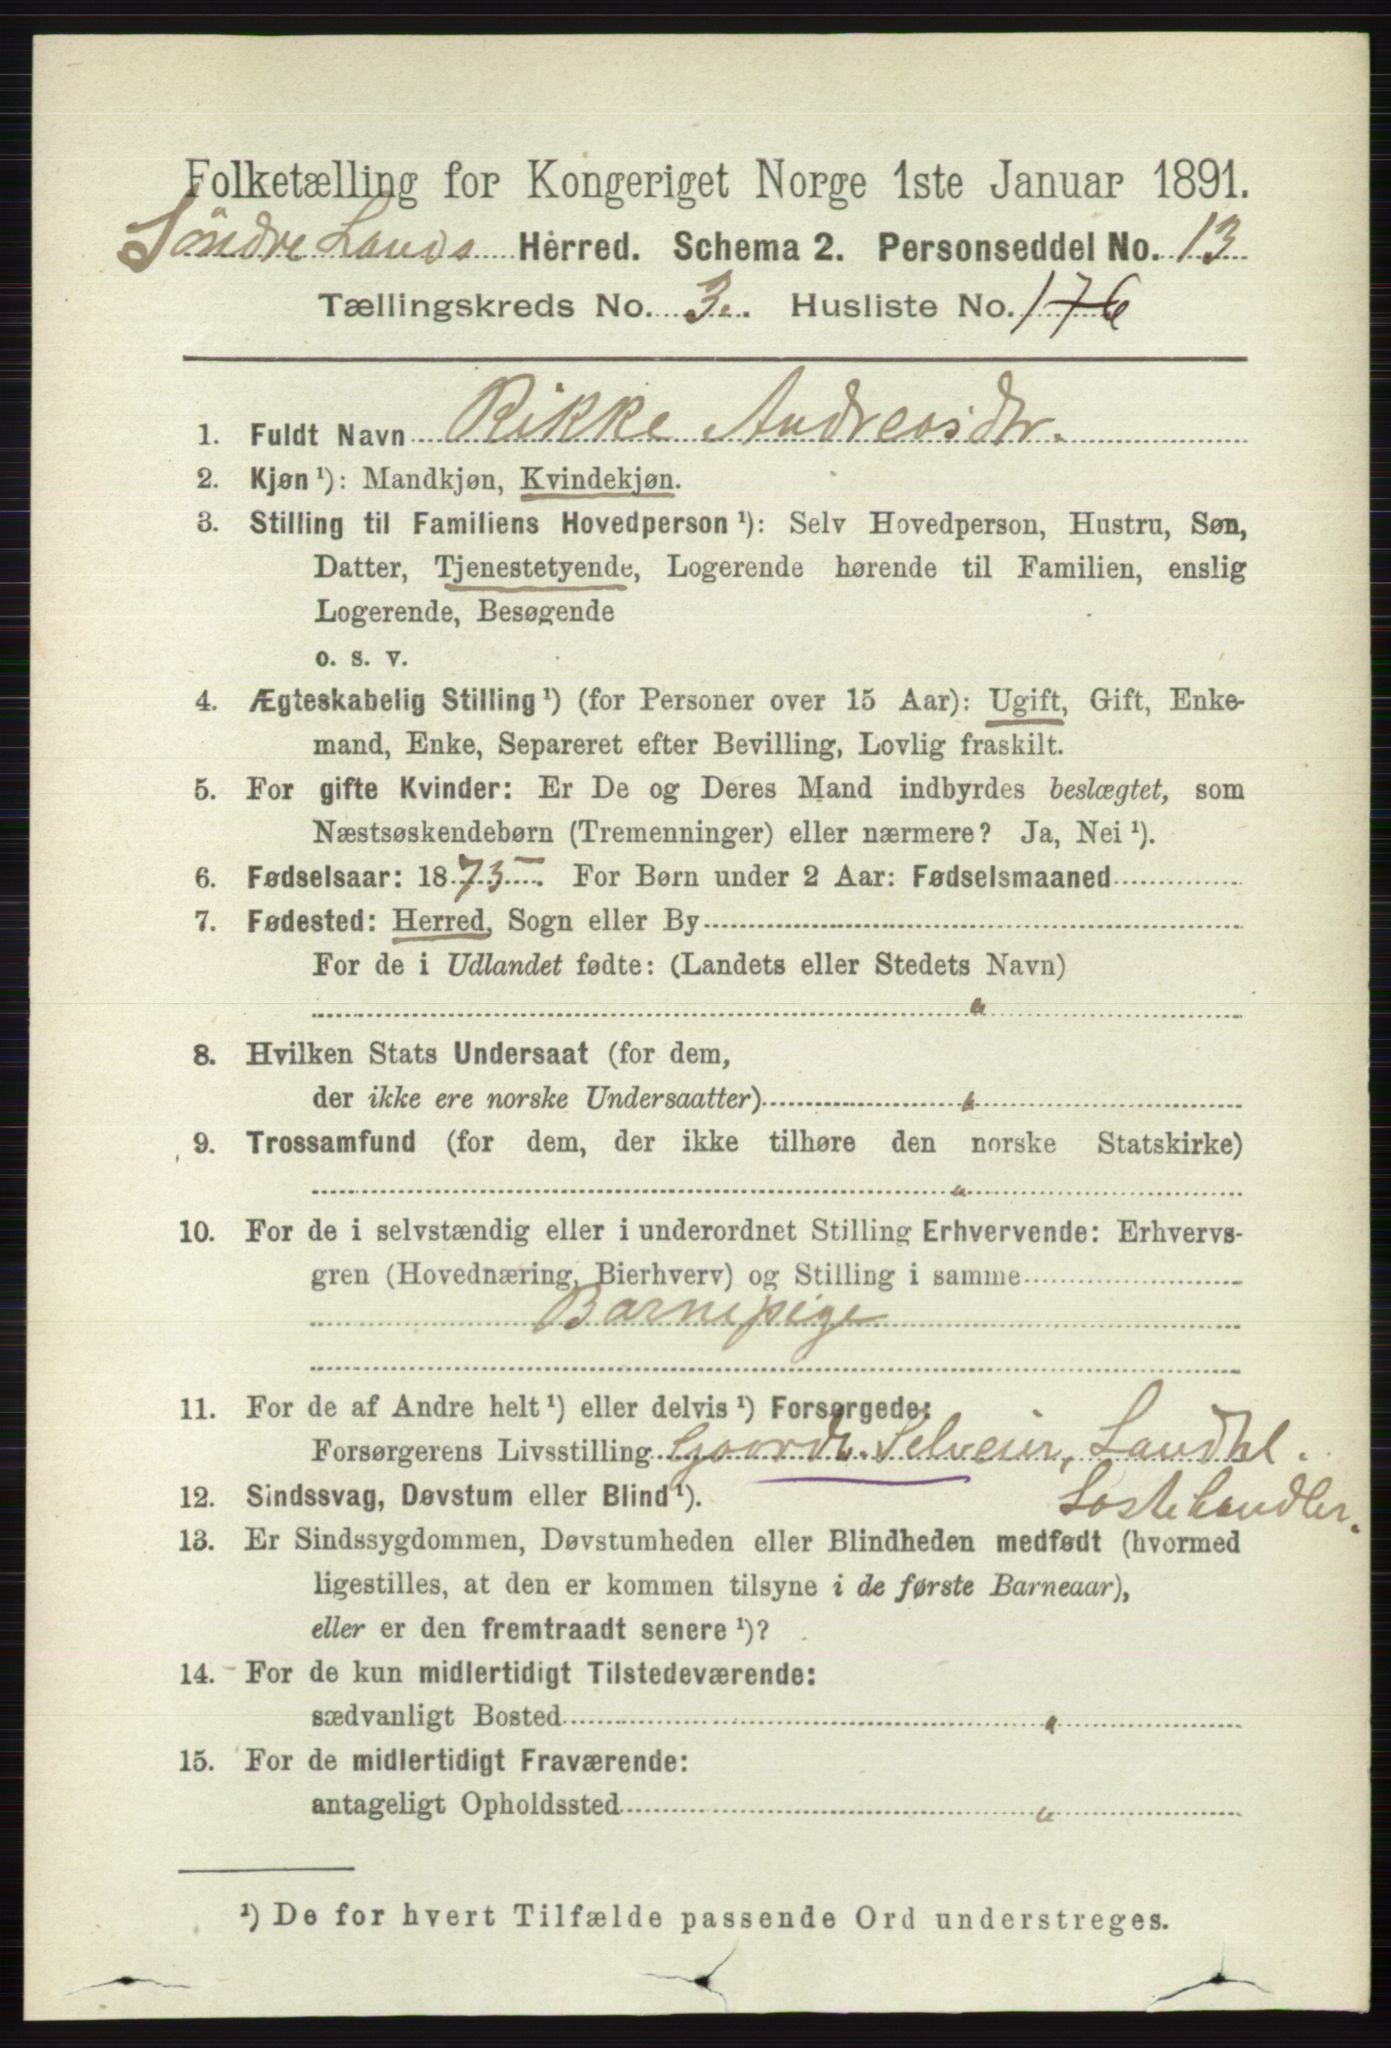 Folketælling for Kongeriget Norge 1ste Januar 1891.
Söndre Lands Herred. Schema 2. Personseddel No. 13
Tællingskreds No. 3. Husliste No. 176
1. Fuldt Navn Rikke Andreasdtr.
2. Kjøn ¹): Mandkjøn, Kvindekjøn.
3. Stilling til Familiens Hovedperson ¹): Selv Hovedperson, Hustru, Søn,
Datter, Tjenestetyende, Logerende hørende til Familien, enslig
Logerende, Besøgende
o. s. v.
4. Ægteskabelig Stilling ¹) (for Personer over 15 Aar): Ugift, Gift, Enke-
mand, Enke, Separeret efter Bevilling, Lovlig fraskilt.
5. For gifte Kvinder: Er De og Deres Mand indbyrdes beslægtet, som
Næstsøskendebørn (Tremenninger) eller nærmere? Ja, Nei ¹).
6. Fødselsaar: 1873. For Børn under 2 Aar: Fødselsmaaned
7. Fødested: Herred, Sogn eller By
For de i Udlandet fødte: (Landets eller Stedets Navn)
8. Hvilken Stats Undersaat (for dem,
der ikke ere norske Undersaatter)
9. Trossamfund (for dem, der ikke tilhøre den norske Statskirke)
10. For de i selvstændig eller i underordnet Stilling Erhvervende: Erhvervs-
gren (Hovednæring, Bierhverv) og Stilling i samme
Barnepige
11. For de af Andre helt ¹) eller delvis ¹) Forsørgede:
Forsørgerens Livsstilling Gaardb. Selveier, Landhl.
12. Sindssvag, Døvstum eller Blind ¹).
13. Er Sindssygdommen, Døvstumheden eller Blindheden medfødt (hvormed
ligestilles, at den er kommen tilsyne i de første Barneaar),
eller er den fremtraadt senere ¹)?
14. For de kun midlertidigt Tilstedeværende:
sædvanligt Bosted
15. For de midlertidigt Fraværende:
antageligt Opholdssted
¹) De for hvert Tilfælde passende Ord understreges.